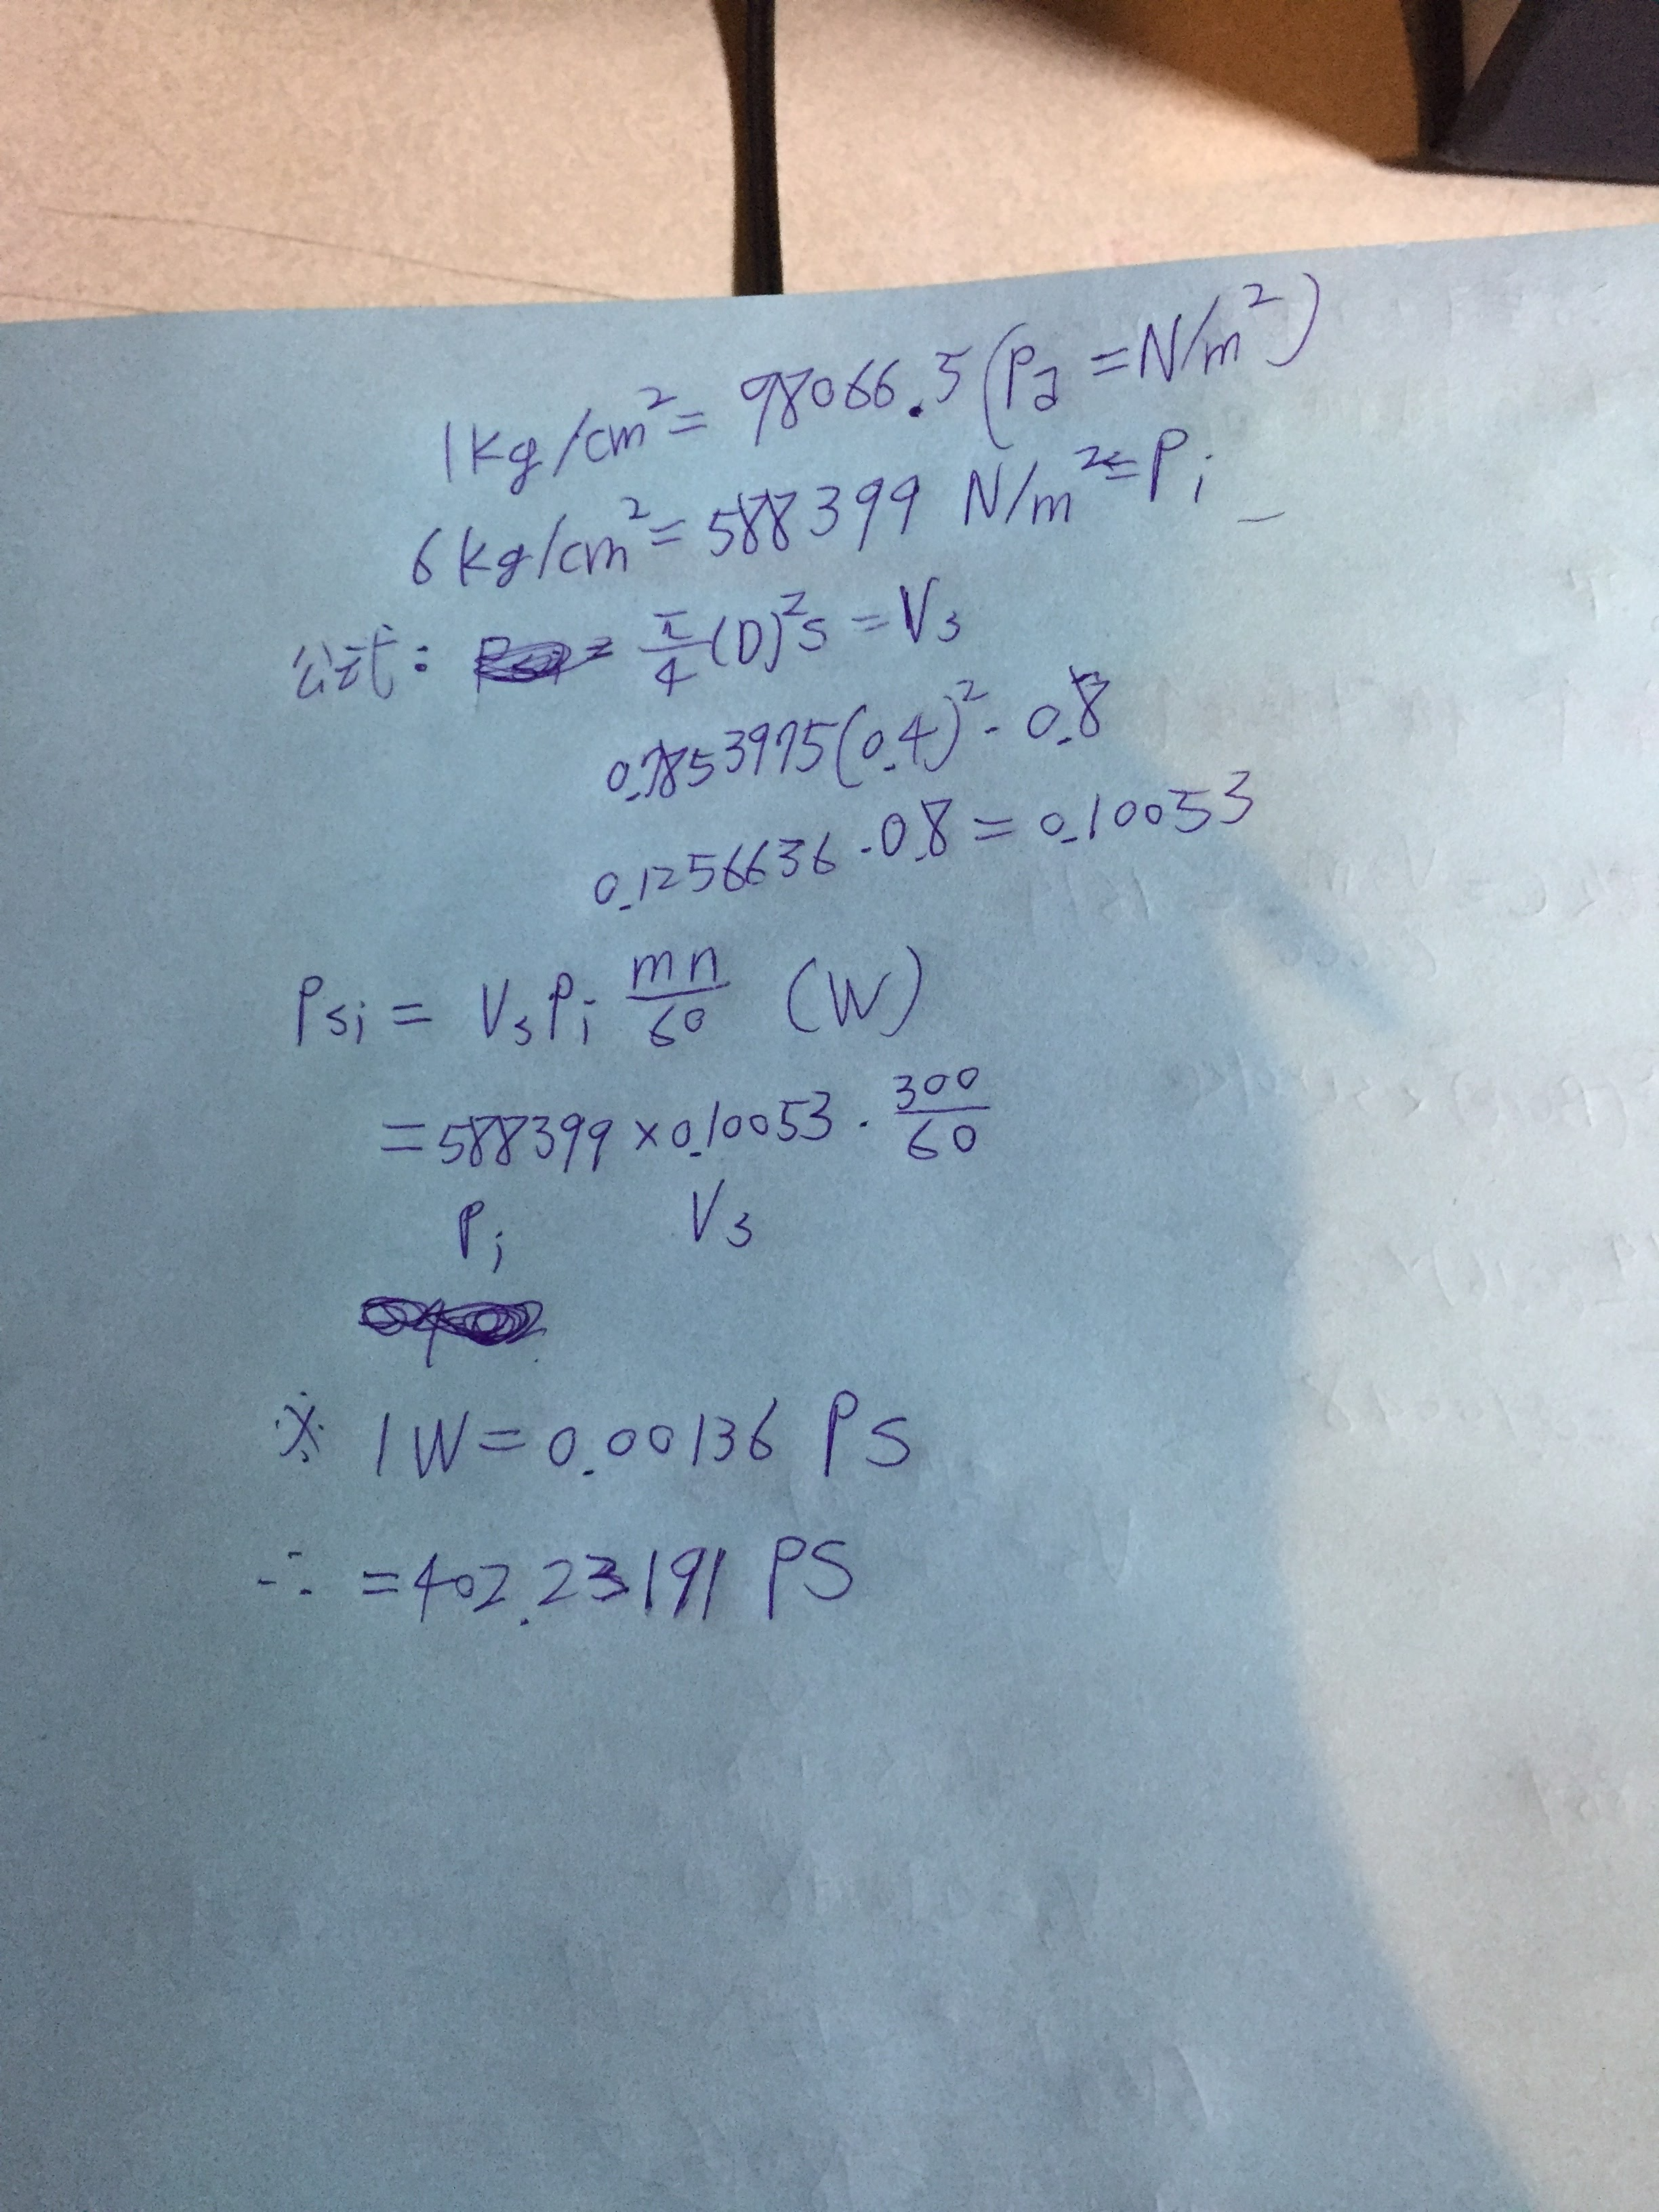 1kg/cm²= 98066.5(Pa=N/m²)
6kg/cm²=588399 N/m²=Pi
公式: = π/4(D)²s=Vs
0.7853975(0.4)²·0.8
0.1256636·0.8=0.10053
Psi= VsPi mn/60 (W)
=588399×0.10053·300/60
Pi Vs
※ 1W=0.00136 PS
∴ =402.23191 PS